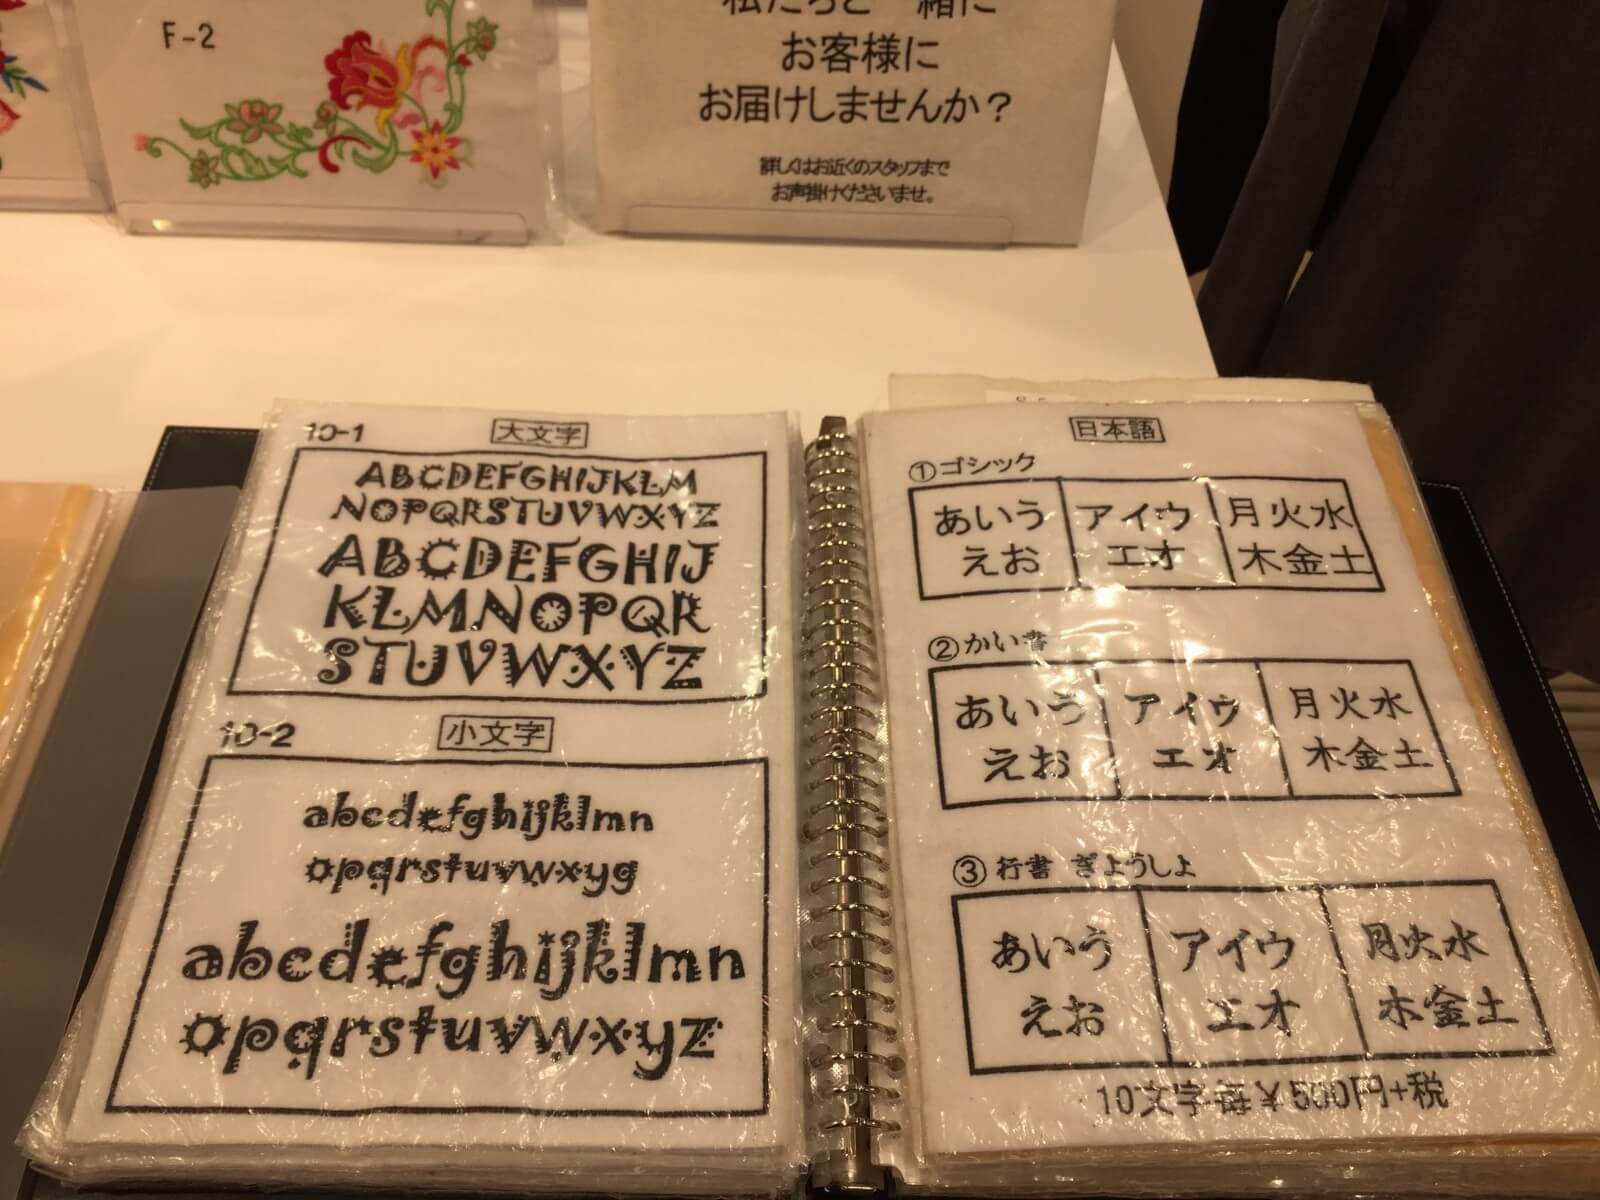 F-2
お客様に
お届けしませんか?
詳しくはお近くのスタッフまで
お声掛けくださいませ。
10-1 大文字
ABCDEFGHIJKLM
NOPQRSTUVWXYZ
ABCDEFGHIJ
KLMNOPQR
STUVWXYZ
10-2 小文字
abcdefghijklmn
opqrstuvwxyg
abcdefghijklmn
opqrstuvwxyz
日本語
①ゴシック
あいう アイウ 月火水
えお エオ 木金土
②かい書
あいう アイウ 月火水
えお エオ 木金土
③行書 ぎょうしょ
あいう アイウ 月火水
えお エオ 木金土
10文字毎¥500円+税